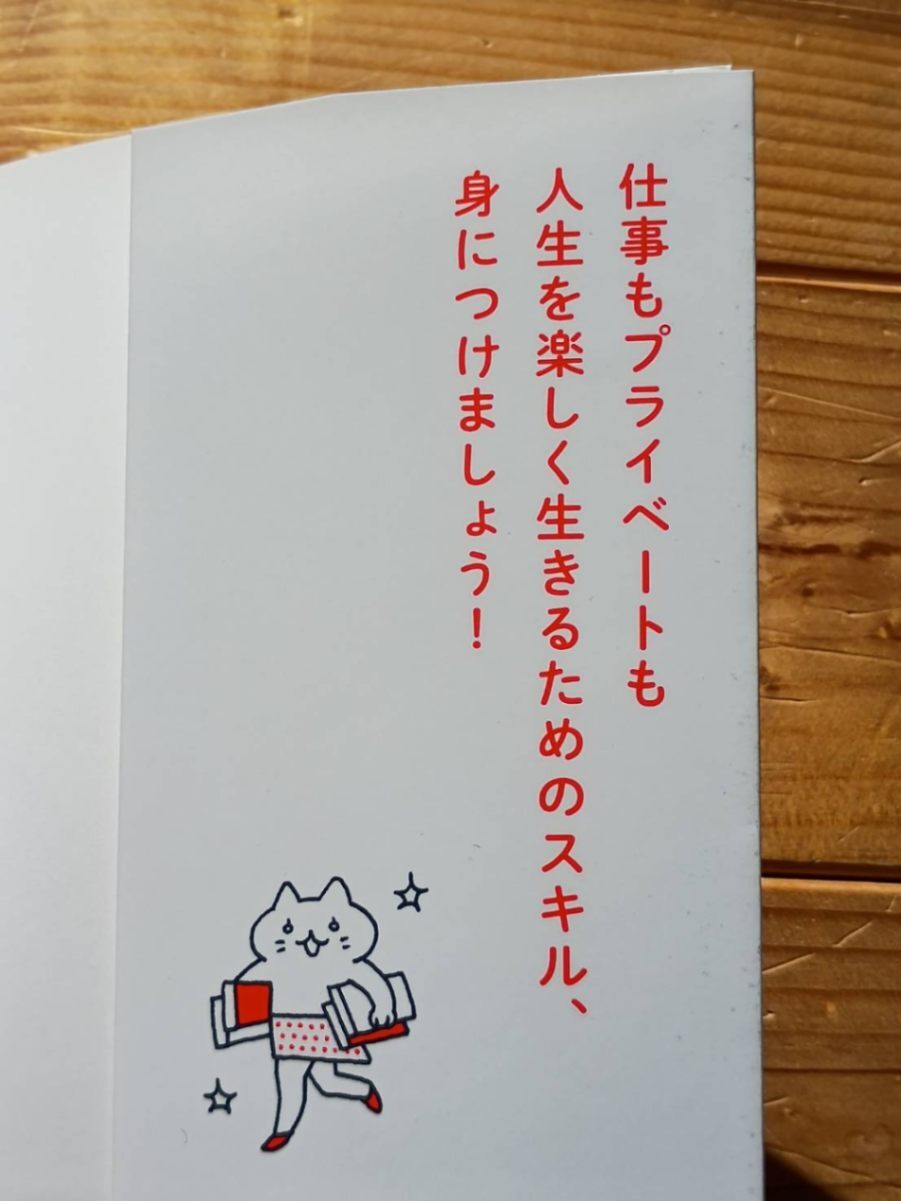 仕事もプライベートも
人生を楽しく生きるためのスキル、
身につけましょう！